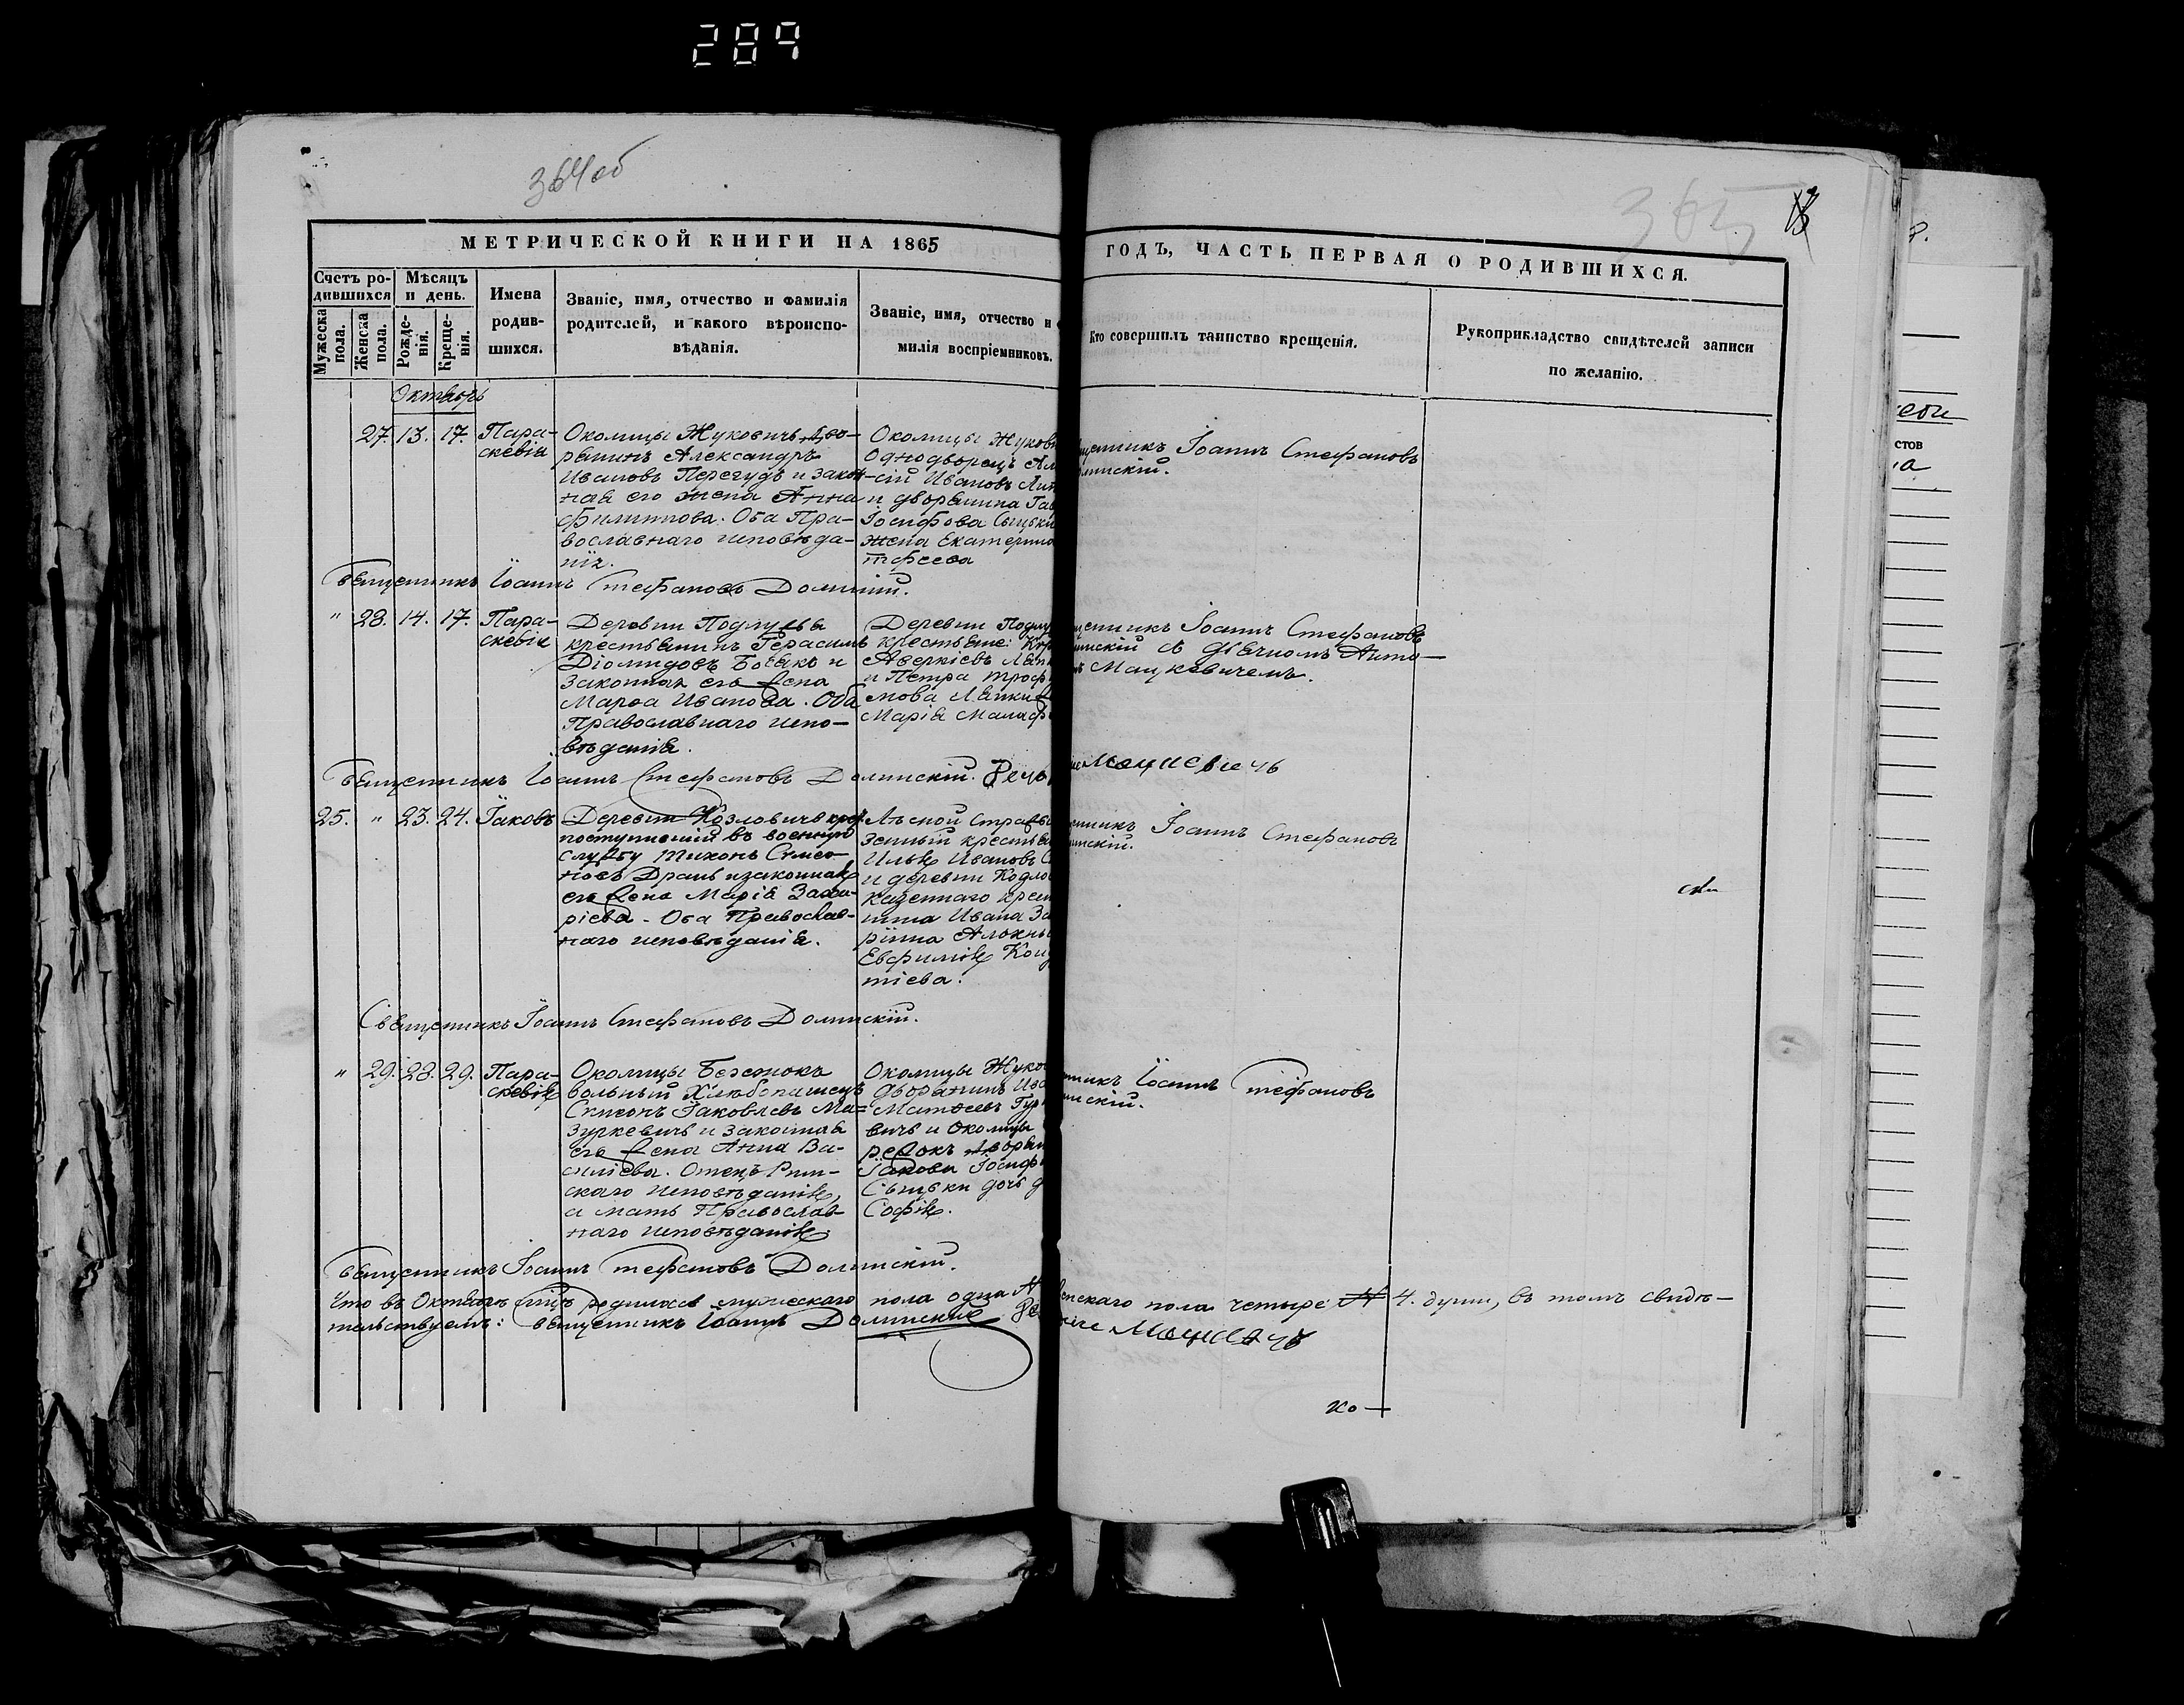 289
364об
365
МЕТРИЧЕСКОЙ КНИГИ НА 1865
ГОДЪ, ЧАСТЬ ПЕРВАЯ О РОДИВШИХСЯ.
Счетъ ро-
дившихся
Мѣсяцъ
и день.
Мужеска
пола.
Женска
пола.
Рожде-
нія.
Креще-
нія.
Имена
родив-
шихся.
Званіе, имя, отчество и фамилія
родителей, и какого вѣроиспо-
вѣданія.
Званіе, имя, отчество и
милія воспріемниковъ.
Кто совершилъ таинство крещенія.
Рукоприкладство свидѣтелей записи
по желанію.
Октябрь
27. 13. 17.
Пара-
скевія
Околицы Жуковичъ Дво-
рянинъ Александръ
Ивановъ Перегудъ и закон-
ная его жена Анна
Филиппова. Оба Пра-
вославнаго исповѣда-
нія.
Околицы Жукови
Однодворецъ Ал
сій Ивановъ
и дворянина Га
Іосифова Сыцьки
жена Екатерина
тфеева
щенникъ Іоаннъ Стефановъ
линскій.
Священникъ Іоаннъ Стефановъ Долинскій.
" 28. 14. 17.
Пара-
скевія
Деревни Подлужья
крестьянинъ Герасимъ
Діомидовъ Боякъ и
законная его жена
Марѳа Иванова. Оба
Православнаго испо-
вѣданія.
Деревни Подлу
крестьяне:
Аверкіевъ
и Петра Троф
мова
Марія Малаф
щенникъ Іоаннъ Стефановъ
линскій съ дьячкомъ Анто-
Мацкевичемъ.
Священникъ Іоаннъ Стефановъ Долинскій.
Мацкевичь
25. " 23. 24.
Іаковъ
Деревни Козловичъ
поступившій въ военную
службу Тихонъ Симео-
новъ Драпъ и законная
его жена Марія Заха-
ріева. Оба Православ-
наго исповѣданія.
Лѣсной Стражи
зенный крестья
Илья Ивановъ
и деревни Козло
казеннаго крест
нина Ивана За
Евфимія
тіева.
щенникъ Іоаннъ Стефановъ
линскій.
Священникъ Іоаннъ Стефановъ Долинскій.
" 29. 28. 29.
Пара-
скевія
Околицы Бережокъ
вольный Хлѣбопашецъ
Симеонъ Іаковлевъ Ма-
зуркевичъ и законная
его жена Анна Ва-
силіева. Отецъ Рим-
скаго исповѣданія,
а мать Православ-
наго исповѣданія.
Околицы Жуко
дворянинъ
Матѳеевъ Гур
вичъ и Околицы
режокъ дворян
Іакова Іосиф
Сыцьки дочь
Софія.
нникъ Іоаннъ Стефановъ
линскій.
Священникъ Іоаннъ Стефановъ Долинскій.
Что въ Октябрѣ мѣсяцѣ родилось мужескаго пола одна женскаго пола четыре 4. души, въ томъ свидѣ-
тельствуемъ: Священникъ Іоаннъ Долинскій
Мацкевичь